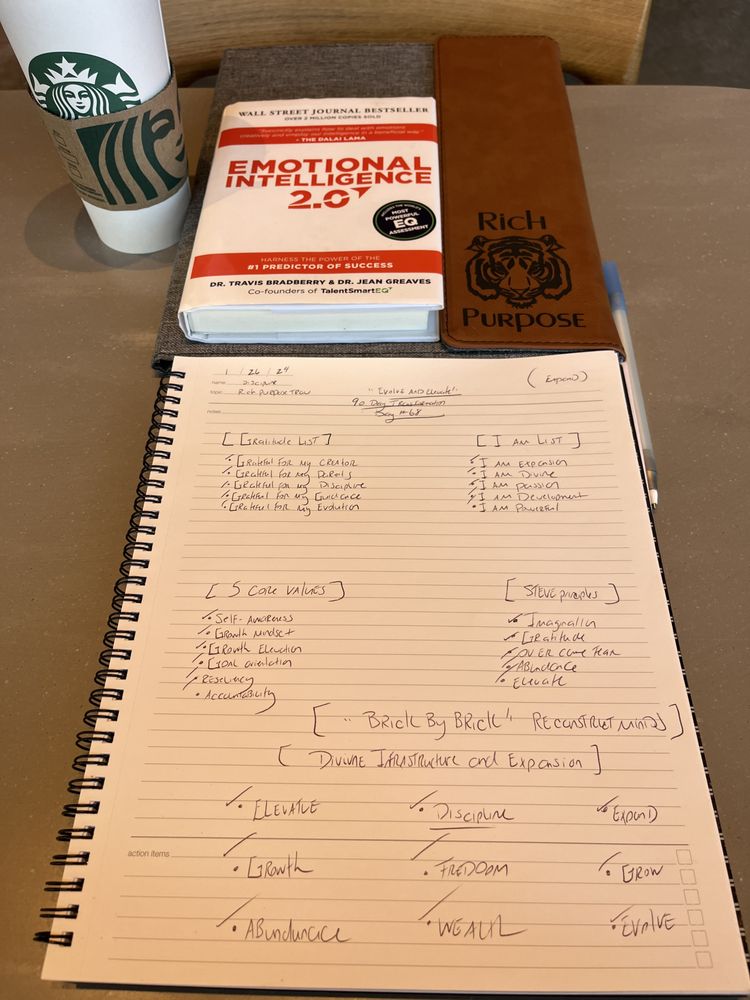 WALL STREET JOURNAL BESTSELLER
OVER 2 MILLION COPIES SOLD
"Succinctly explains how to deal with emotions
creatively and employ our intelligence in a beneficial way."
- THE DALAI LAMA
EMOTIONAL
INTELLIGENCE
2.0
INCLUDES THE WORLD'S
MOST
POWERFUL
EQ
ASSESSMENT
HARNESS THE POWER OF THE
#1 PREDICTOR OF SUCCESS
DR. TRAVIS BRADBERRY & DR. JEAN GREAVES
Co-founders of TalentSmartEQ
Rich
Purpose
1 / 26 / 24
name Discipline
topic Rich Purpose
"Evolve and Elevate"
90 Day Transformation
Day #68
(Expand)
notes
[Gratitude List]
• Grateful for my Creator
• Grateful for my
• Grateful for my Discipline
• Grateful for my Guidance
• Grateful for my Evolution
[I AM LIST]
• I AM Expansion
• I AM Divine
• I AM passion
• I AM Development
• I AM Powerful
[5 Core Values]
• Self-Awareness
• Growth Mindset
• Growth Elevation
• Goal orientation
• Resiliency
• Accountability
[STEVE principles]
• Imagination
• Gratitude
• OVER come Fear
• Abundance
• Elevate
["BRick By BRick" RECONSTRUCT MIND]
[Divine Infrastructure and Expansion]
• ELEVATE
• Discipline
• Expand
action items
• Growth
• FREEDOM
• GROW
• Abundance
• WEALTH
• EVOLVE